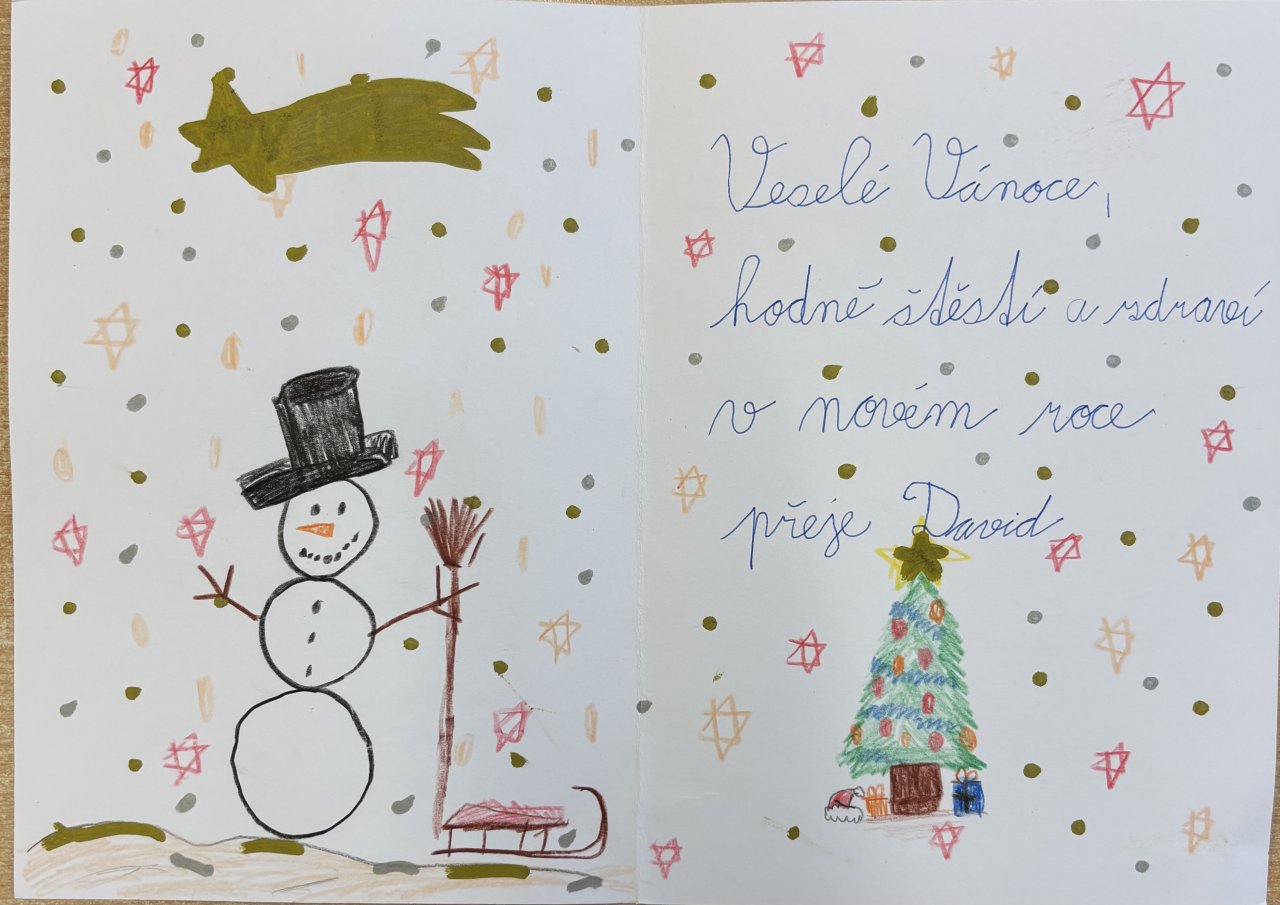 Veselé Vánoce,
hodně štěstí a zdraví
v novém roce
přeje David